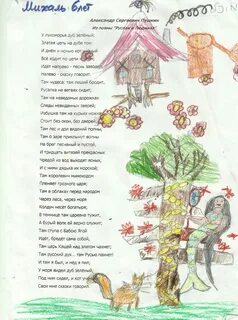 Михаль 6лет
Александр Сергеевич Пушкин
Из поэмы "Руслан и Людмила"
У лукоморья дуб зелёный;
Златая цепь на дубе том:
И днём и ночью кот
Всё ходит по цепи
Идёт направо - песнь заводит,
Налево - сказку говорит.
Там чудеса: там леший бродит,
Русалка на ветвях сидит;
Там на неведомых дорожках
Следы невиданных зверей;
Избушка там на курьих
Стоит без окон, без дверей;
Там лес и дол видений полны;
Там о заре прихлынут волны
На брег песчаный и пустой,
И тридцать витязей прекрасных
Чредой из вод выходят ясных,
И с ними дядька их морской;
Там королевич мимоходом
Пленяет грозного царя;
Там в облаках перед народом
Через леса, через моря
Колдун несёт богатыря;
В темнице там царевна тужит,
А бурый волк ей верно служит;
Там ступа с Бабою Ягой
Идёт, бредёт сама собой,
Там царь Кащей над златом чахнет;
Там русский дух... там Русью пахнет!
И там я был, и мёд я пил;
У моря видел дуб зелёный;
Под ним сидел, и кот
Свои мне сказки говорил.